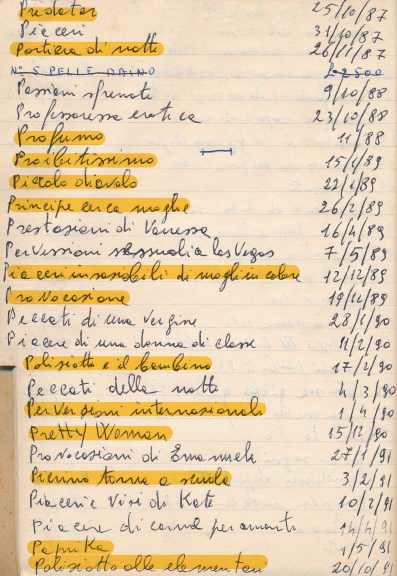 Predator 25/10/87
Piaceri 31/10/87
Portiera di notte 26/11/87
N° 5 PELLE DAINO £ 2500
Passioni sfrenate 9/10/88
Professoressa erotica 23/10/88
Profumo 11/88
Proibitissimo 15/1/89
Piccolo diavolo 22/1/89
Principe cerca moglie 26/2/89
Prestazioni di Vanessa 16/4/89
Perversioni sessuali a las Vegas 7/5/89
Piaceri insaziabili di moglie in calore 12/12/89
Provocazione 19/12/89
Peccati di una vergine 28/1/90
Piacere di una donna di classe 11/2/90
Poliziotto e il bambino 17/2/90
Peccati della notte 4/3/90
Perversioni internazionali 1/4/90
Pretty Woman 15/12/90
Provocazioni di Emanuela 27/1/91
Pierino torna a scuola 3/2/91
Piaceri e Vizi di Kate 10/2/91
Piacere di carne per amanti 14/4/91
Paprika 1/5/91
Poliziotto alle elementari 20/10/91